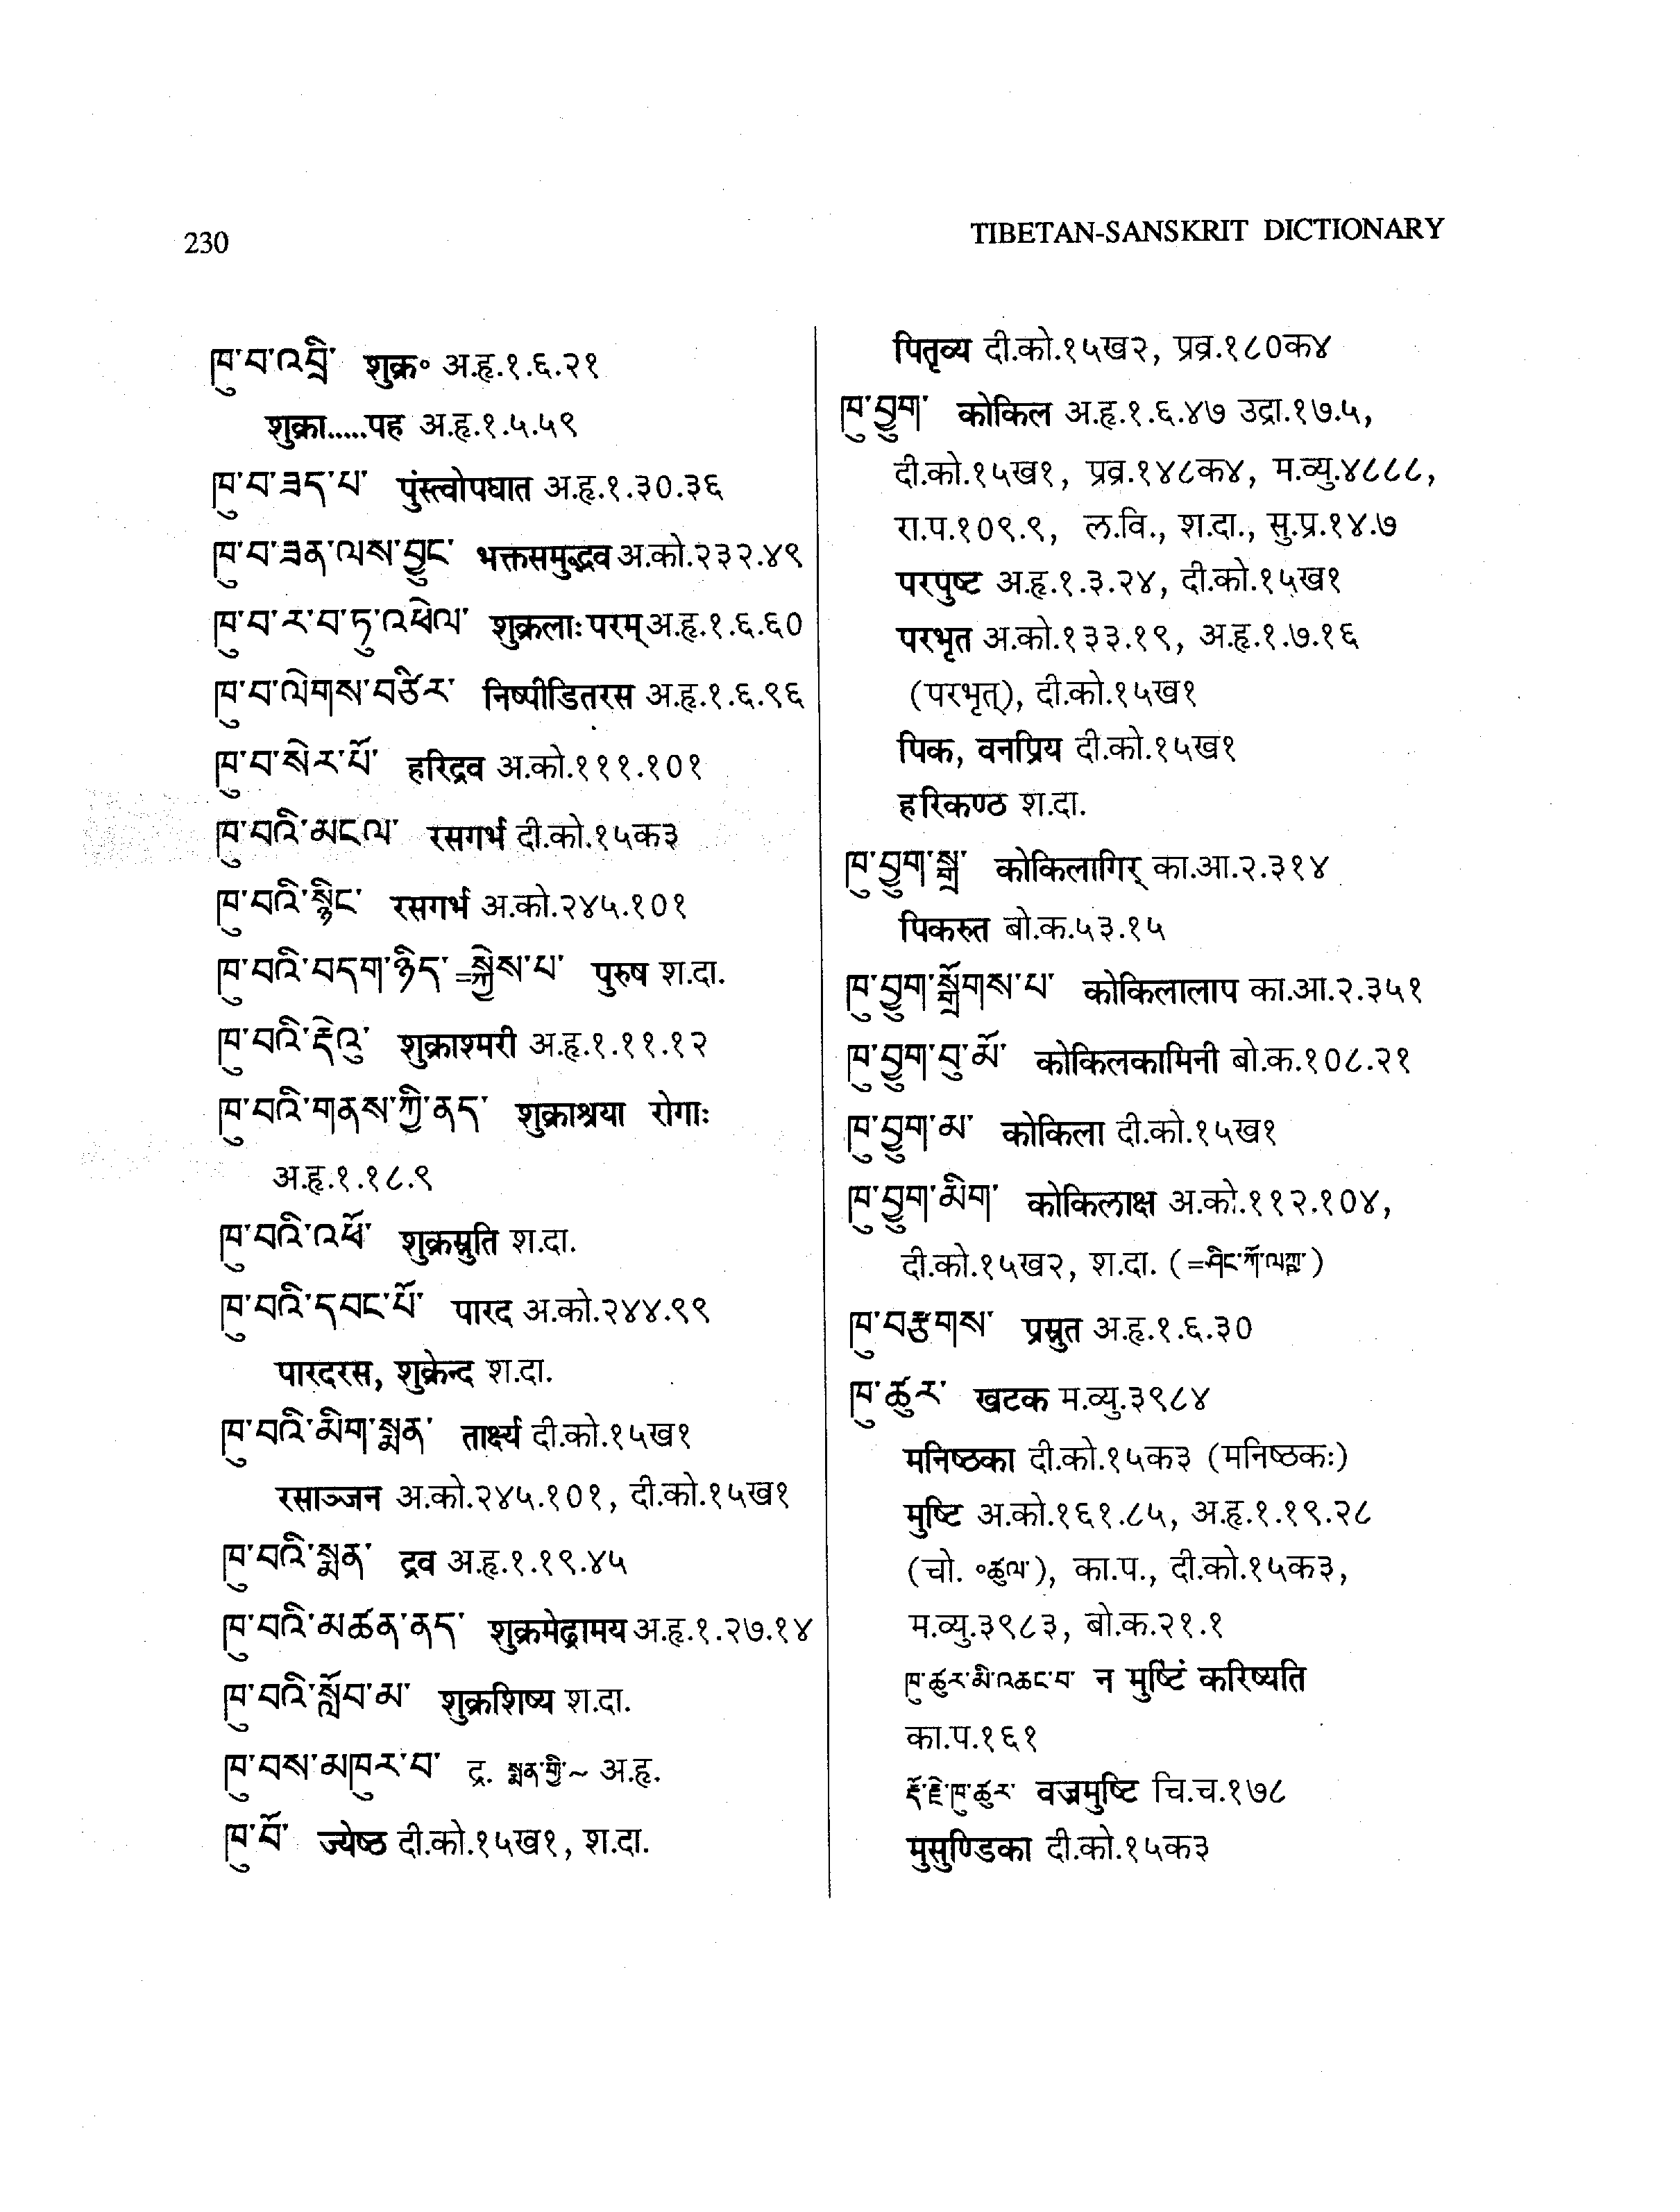 230
TIBETAN-SANSKRIT DICTIONARY
ཁུ་བ་འབྲི་ शुक्र॰ अ.हृ.१.६.२१
शुक्रा.....पह अ.हृ.१.५.५९
ཁུ་བ་ཟད་པ་ पुंस्त्वोपघात अ.हृ.१.३०.३६
ཁུ་བ་ཟན་ལས་བྱུང་ भक्तसमुद्भव अ.को.२३२.४९
ཁུ་བ་རབ་ཏུ་འཕེལ་ शुक्रलाः परम् अ.हृ.१.६.६०
ཁུ་བ་ལེགས་བཙིར་ निष्पीडितरस अ.हृ.१.६.९६
ཁུ་བ་སེར་པོ་ हरिद्रव अ.को.१११.१०१
ཁུ་བའི་མངལ་ रसगर्भ दी.को.१५क३
ཁུ་བའི་སྙིང་ रसगर्भ अ.को.२४५.१०१
ཁུ་བའི་བདག་ཉིད་=སྐྱེས་པ་ पुरुष श.दा.
ཁུ་བའི་རྡེའུ་ शुक्राश्मरी अ.हृ.१.११.१२
ཁུ་བའི་གནས་ཀྱི་ནད་ शुक्राश्रया रोगाः
अ.हृ.१.१८.९
ཁུ་བའི་འཕོ་ शुक्रस्रुति श.दा.
ཁུ་བའི་དབང་པོ་ पारद अ.को.२४४.९९
पारदरस, शुक्रेन्द श.दा.
ཁུ་བའི་མིག་སྨན་ तार्क्ष्य दी.को.१५ख१
रसाञ्जन अ.को.२४५.१०१, दी.को.१५ख१
ཁུ་བའི་སྨན་ द्रव अ.हृ.१.१९.४५
ཁུ་བའི་མཚན་ནད་ शुक्रमेढ्रामय अ.हृ.१.२७.१४
ཁུ་བའི་སློབ་མ་ शुक्रशिष्य श.दा.
ཁུ་བས་མཁུར་བ་ द्र. སྨན་གྱི་~ अ.हृ.
ཁུ་བོ་ ज्येष्ठ दी.को.१५ख१, श.दा.
पितृव्य दी.को.१५ख२, प्रव्र.१८०क४
ཁུ་བྱུག་ कोकिल अ.हृ.१.६.४७ उद्रा.१७.५,
दी.को.१५ख१, प्रव्र.१४८क४, म.व्यु.४८८८,
रा.प.१०९.९, ल.वि., श.दा., सु.प्र.१४.७
परपुष्ट अ.हृ.१.३.२४, दी.को.१५ख१
परभृत अ.को.१३३.१९, अ.हृ.१.७.१६
(परभृत्), दी.को.१५ख१
पिक, वनप्रिय दी.को.१५ख१
हरिकण्ठ श.दा.
ཁུ་བྱུག་སྒྲ་ कोकिलागिर् का.आ.२.३१४
पिकरुत बो.क.५३.१५
ཁུ་བྱུག་སྒྲོགས་པ་ कोकिलालाप का.आ.२.३५१
ཁུ་བྱུག་བུ་མོ་ कोकिलकामिनी बो.क.१०८.२१
ཁུ་བྱུག་མ་ कोकिला दी.को.१५ख१
ཁུ་བྱུག་མིག་ कोकिलाक्ष अ.को.११२.१०४,
दी.को.१५ख२, श.दा. (=ཤིང་ཀོ་ལཀྵ་)
ཁུ་བརྩགས་ प्रस्रुत अ.हृ.१.६.३०
ཁུ་ཚུར་ खटक म.व्यु.३९८४
मनिष्ठका दी.को.१५क३ (मनिष्ठकः)
मुष्टि अ.को.१६१.८५, अ.हृ.१.१९.२८
(चो. ॰ཚུལ་), का.प., दी.को.१५क३,
म.व्यु.३९८३, बो.क.२१.१
ཁུ་ཚུར་མི་འཆང་བ་ न मुष्टिं करिष्यति
का.प.१६१
རྡོ་རྗེ་ཁུ་ཚུར་ वज्रमुष्टि चि.च.१७८
मुसुण्डिका दी.को.१५क३